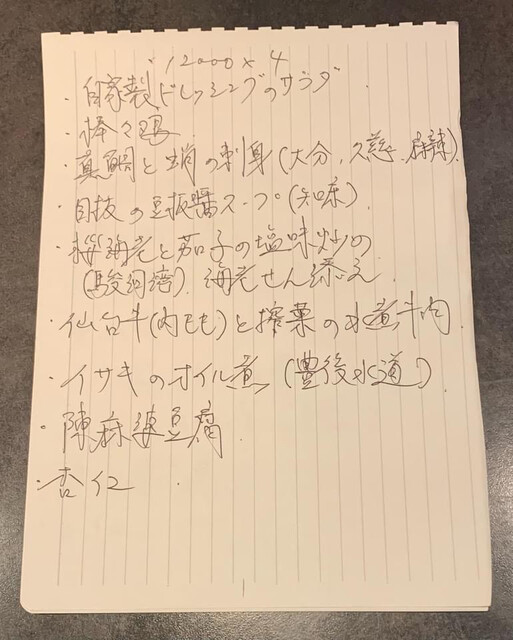 12000×4
・自家製ドレッシングのサラダ
・棒々鶏
・真鯛と蛸の刺身(大分、久慈、麻辣)
・目抜の豆板醤スープ(知床)
・桜海老と茄子の塩味炒め
(駿河湾)海老せん添え
・仙台牛(内もも)と搾菜の水煮牛肉
・イサキのオイル煮(豊後水道)
・陳麻婆豆腐
・杏仁